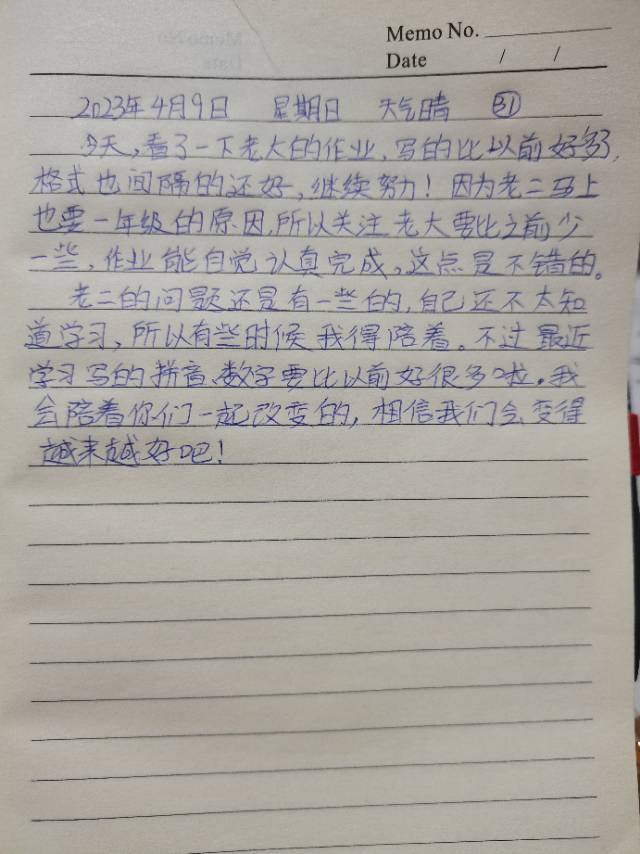 Memo No.
Date / /
2023年4月9日 星期日 天气晴 31
今天,看了一下老大的作业,写的比以前好多了,
格式也间隔的还好,继续努力!因为老二马上
也要一年级的原因,所以关注老大要比之前少
一些,作业能自觉认真完成。这点是不错的。
老二的问题还是有一些的,自己还不太知
道学习,所以有些时候我得陪着。不过最近
学习写的拼音、数字要比以前好很多啦。我
会陪着你们一起改变的,相信我们会变得
越来越好吧!